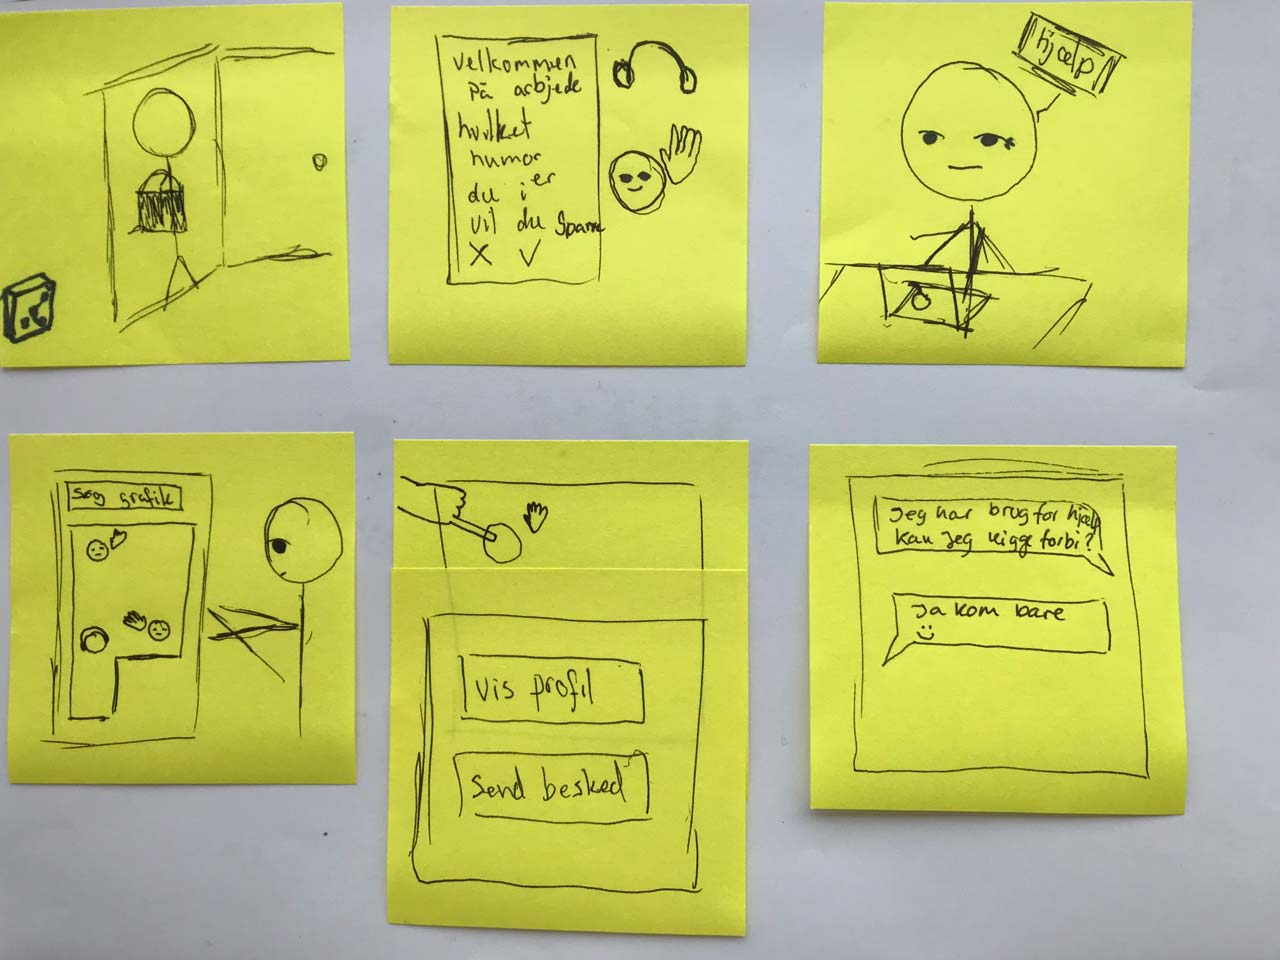 velkommen
på arbjede
hvilket
humør
du i er
vil du spare
X ✓
hjælp
søg grafik
vis profil
send besked
Jeg har brug for hjælp
kan jeg kigge forbi?
Ja kom bare